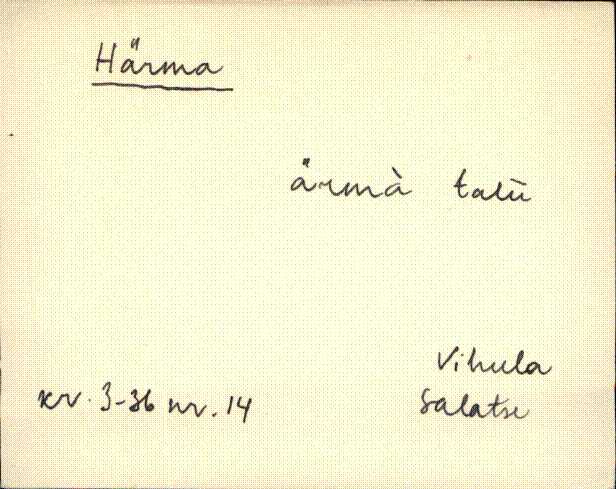 Härma
ärmà talu
Vihula
kr. 3-36 nr. 14 Salatse